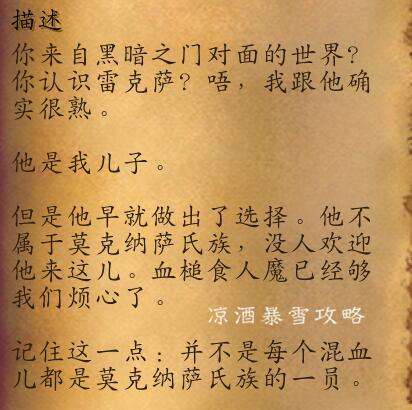 描述
你来自黑暗之门对面的世界？
你认识雷克萨？唔，我跟他确
实很熟。
他是我儿子。
但是他早就做出了选择。他不
属于莫克纳萨氏族，没人欢迎
他来这儿。血槌食人魔已经够
我们烦心了。
凉酒暴雪攻略
记住这一点：并不是每个混血
儿都是莫克纳萨氏族的一员。